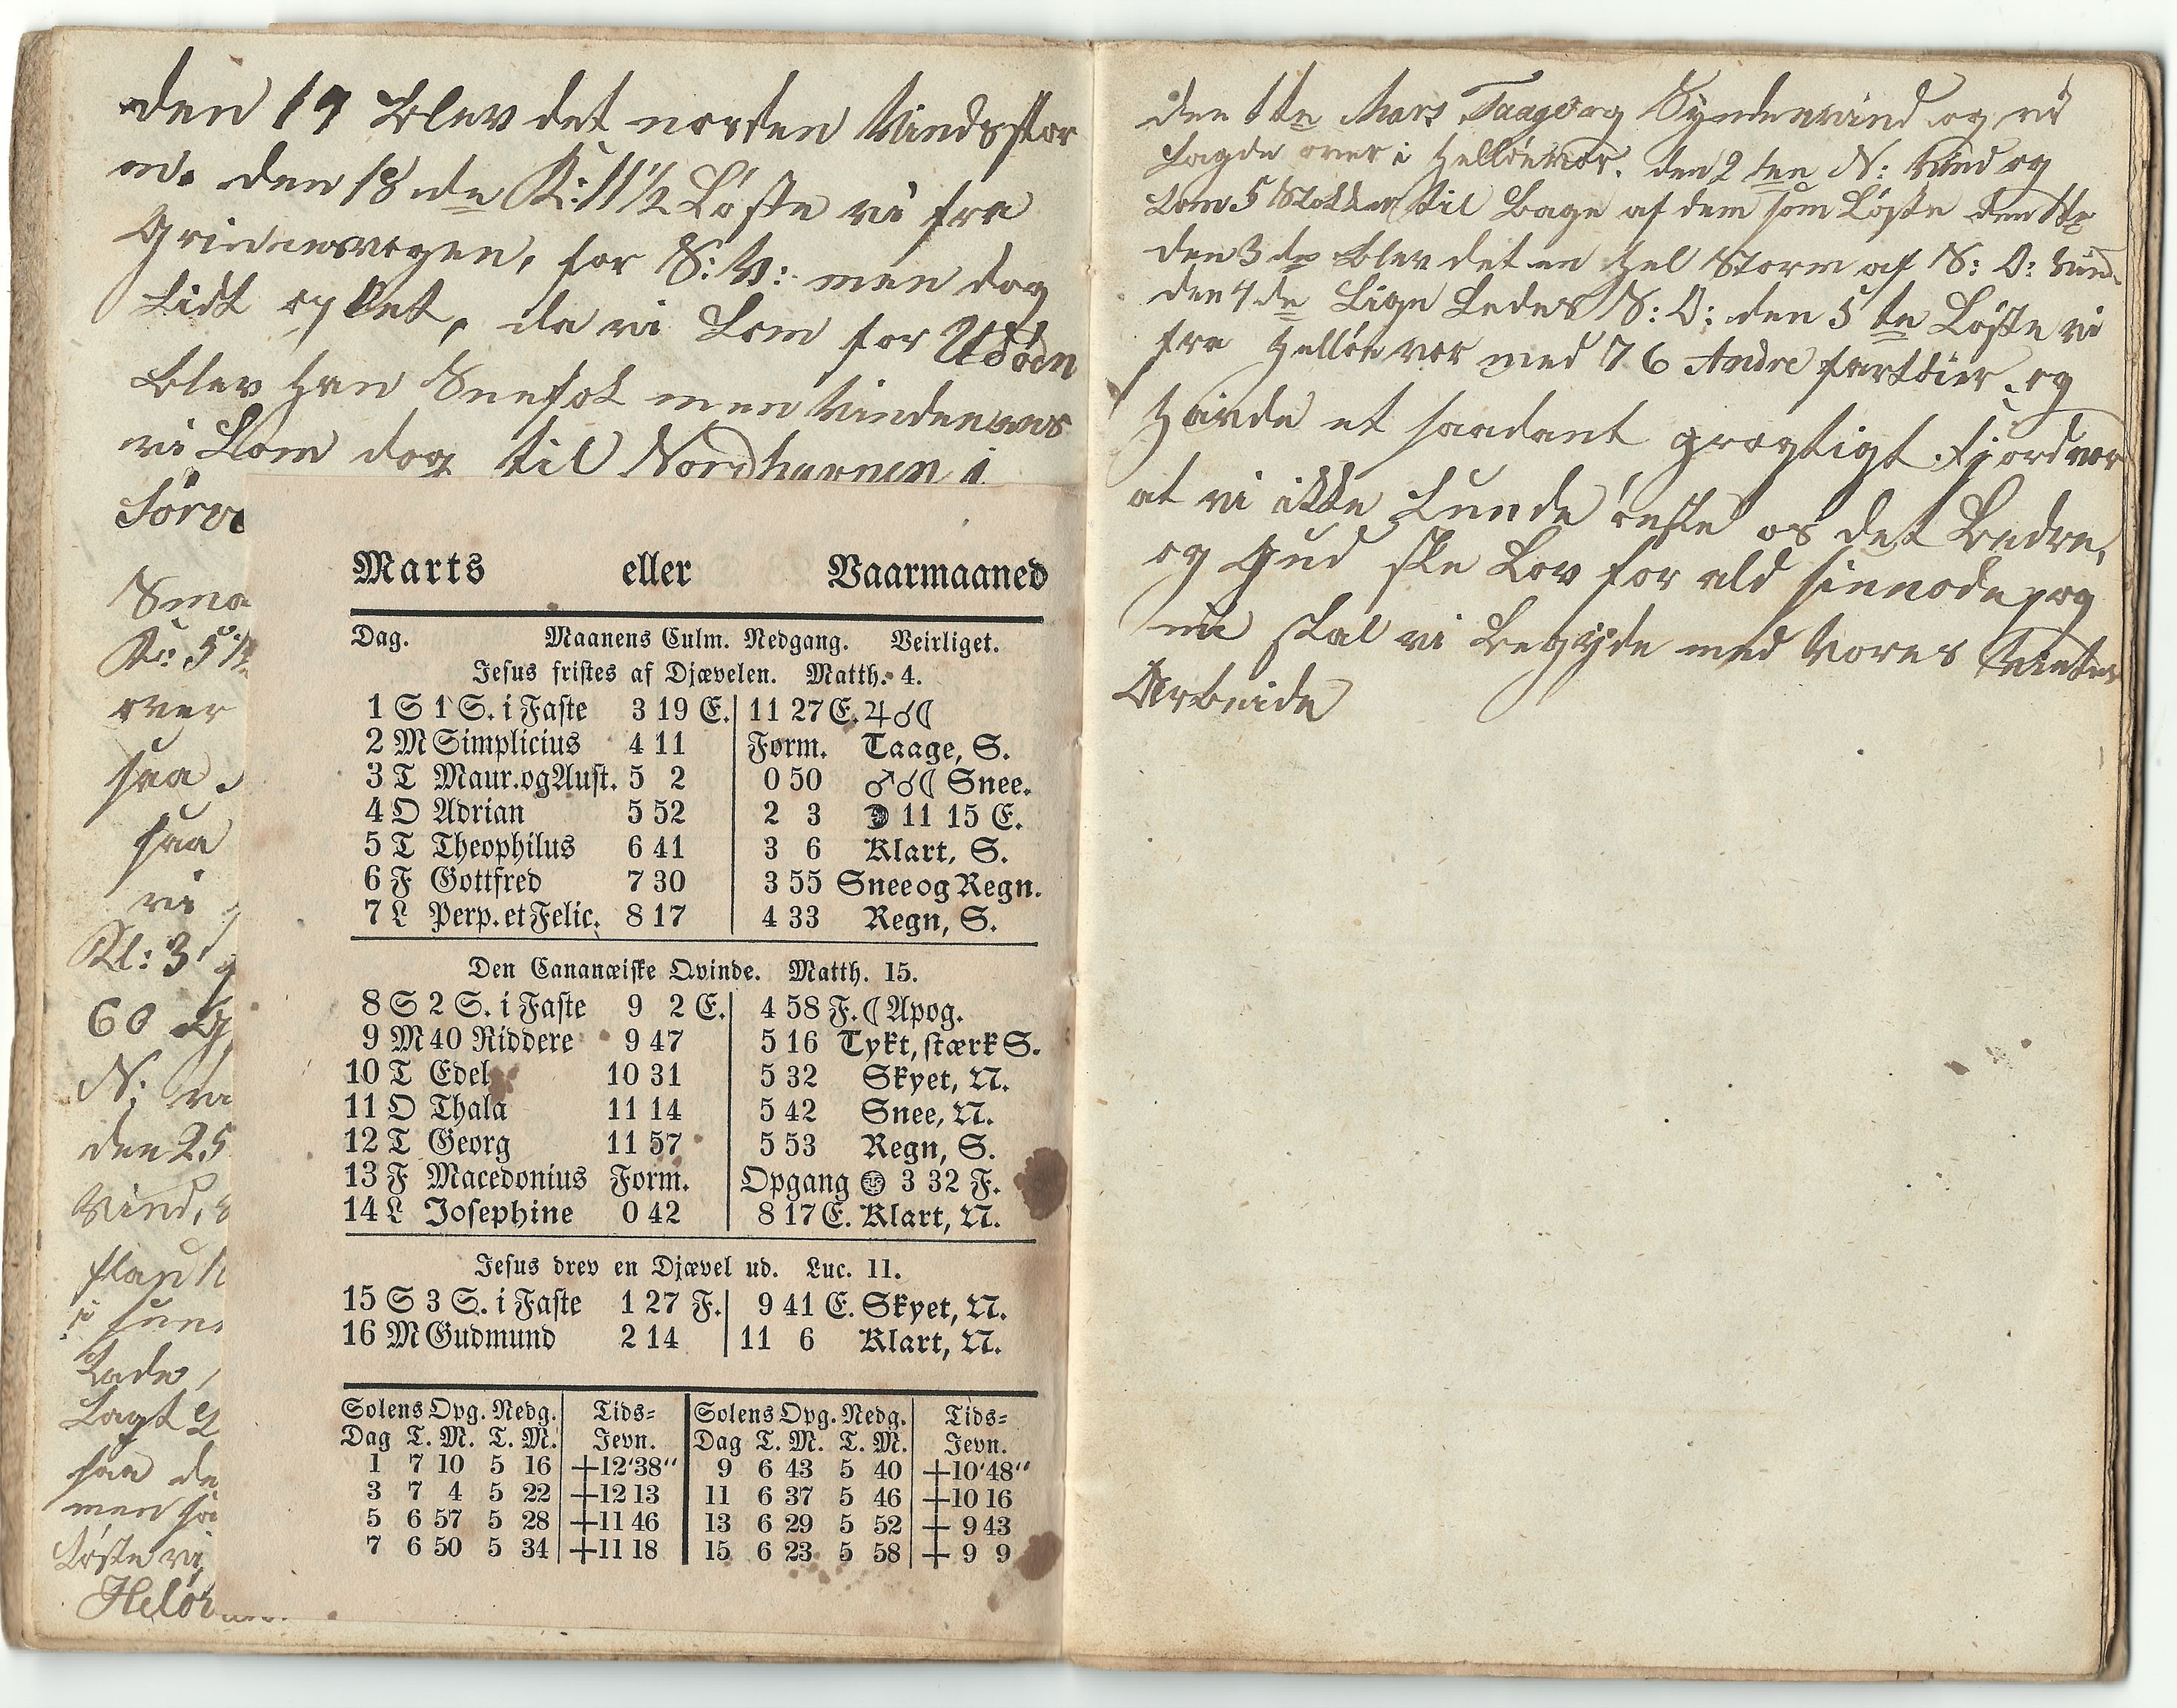 den 19 blev det norden Vindsstor
m. den 18 nde K: 11½ Løste vi fra
for S: V: men dog
Lidt og Let, da vi kom for
blev han Sneefok men Vinden var
vi kom dog til Nordhavnen i
Sørv
Sma
K: 5½
over
saa
saa
vi
Kl: 3
60
N:
den 25
Vind,
flau
i sun
Lade
Lagt
saa de
men saa
Løste vi
Helö
Marts eller Vaarmaaned
Dag. Maanens Culm. Nedgang. Veirliget.
Jesus fristes af Djævelen. Matth. 4.
1 S 1 S. i Faste 3 19 E. 11 27 E. ♃☌☾
2 M Simplicius 4 11 Form. Taage, S.
3 T Maur. og Aust. 5 2 0 50 ♂☌☾ Snee.
4 O Adrian 5 52 2 3 ☽ 11 15 E.
5 T Theophilus 6 41 3 6 Klart, S.
6 F Gottfred 7 30 3 55 Snee og Regn.
7 L Perp. et Felic. 8 17 4 33 Regn, S.
Den Cananæiske Qvinde. Matth. 15.
8 S 2 S. i Faste 9 2 E. 4 58 F. ☾ Apog.
9 M 40 Riddere 9 47 5 16 Tykt, stærk S.
10 T Edel 10 31 5 32 Skyet, N.
11 O Thala 11 14 5 42 Snee, N.
12 T Georg 11 57 5 53 Regn, S.
13 F Macedonius Form. Opgang 🌝 3 32 F.
14 L Josephine 0 42 8 17 E. Klart, N.
Jesus drev en Djævel ud. Luc. 11.
15 S 3 S. i Faste 1 27 F. 9 41 E. Skyet, N.
16 M Gudmund 2 14 11 6 Klart, N.
Solens Opg. Nedg. Tids= Solens Opg. Nedg. Tids=
Dag T. M. T. M. Jevn. Dag T. M. T. M. Jevn.
1 7 10 5 16 +12'38" 9 6 43 5 40 +10'48"
3 7 4 5 22 +12 13 11 6 37 5 46 +10 16
5 6 57 5 28 +11 46 13 6 29 5 52 + 9 43
7 6 50 5 34 +11 18 15 6 23 5 58 + 9 9
den 1te Mars Taage og Syndenvind og vi
Lagde over i Helløevær. den 2den N: Vind og
kom 5 Stokker til Bage af dem som Løste den 1te
den 3de blev det en hel Storm af S: O: Vind
den 4de Lige Ledes S: O: den 5te Løste vi
fra Helløevær med 76 Andre fartöier og
Havde et saadant fjordvær
at vi ikke kunde ønste os det Bedre,
og Gud ske Lov for ald sin node, og
nu skal vi Begyde med Vores Vinter
Arbeide